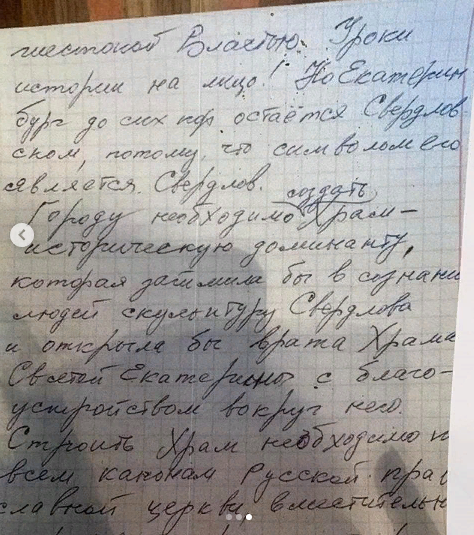 жестокой Властью. Уроки
истории на лицо! Но Екатерин
бург до сих пор остаётся Свердлов-
ском, потому, что символом его
является Свердлов.
создать
Городу необходимо Храм-
историческую доминанту,
которая затмила бы в сознани
людей скульптуру Свердлова
и открыла бы врата Храма
Святой Екатерины с благо-
устройством вокруг него.
Строить Храм необходимо п
всем канонам Русской прав
славной церкви вместительн